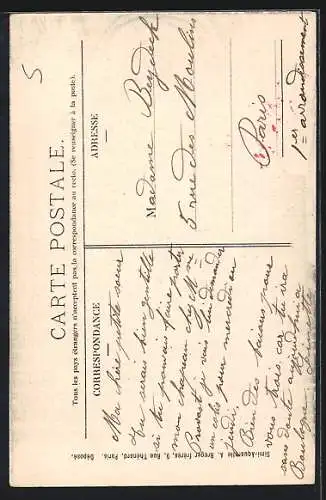 5
CARTE POSTALE.
Tous les pays étrangers n'acceptent pas la correspondance au recto. (Se renseigner à la poste).
CORRESPONDANCE
Ma chère petite soeur
Tu serais bien gentille
si tu pouvais faire porter
mon chapeau chez Mme
Provost je vais lui demander
un pour mercredi ou
jeudi.
Bien des baisers pour
vous trois car tu ira
sans doute aujourd'hui à
Boulogne.
ADRESSE
Madame
5 rue des Moulins
Paris
1er arrondissement
Simi-Aquarelle A. Breger frères, 9, Rue Thénard, Paris. Déposé.